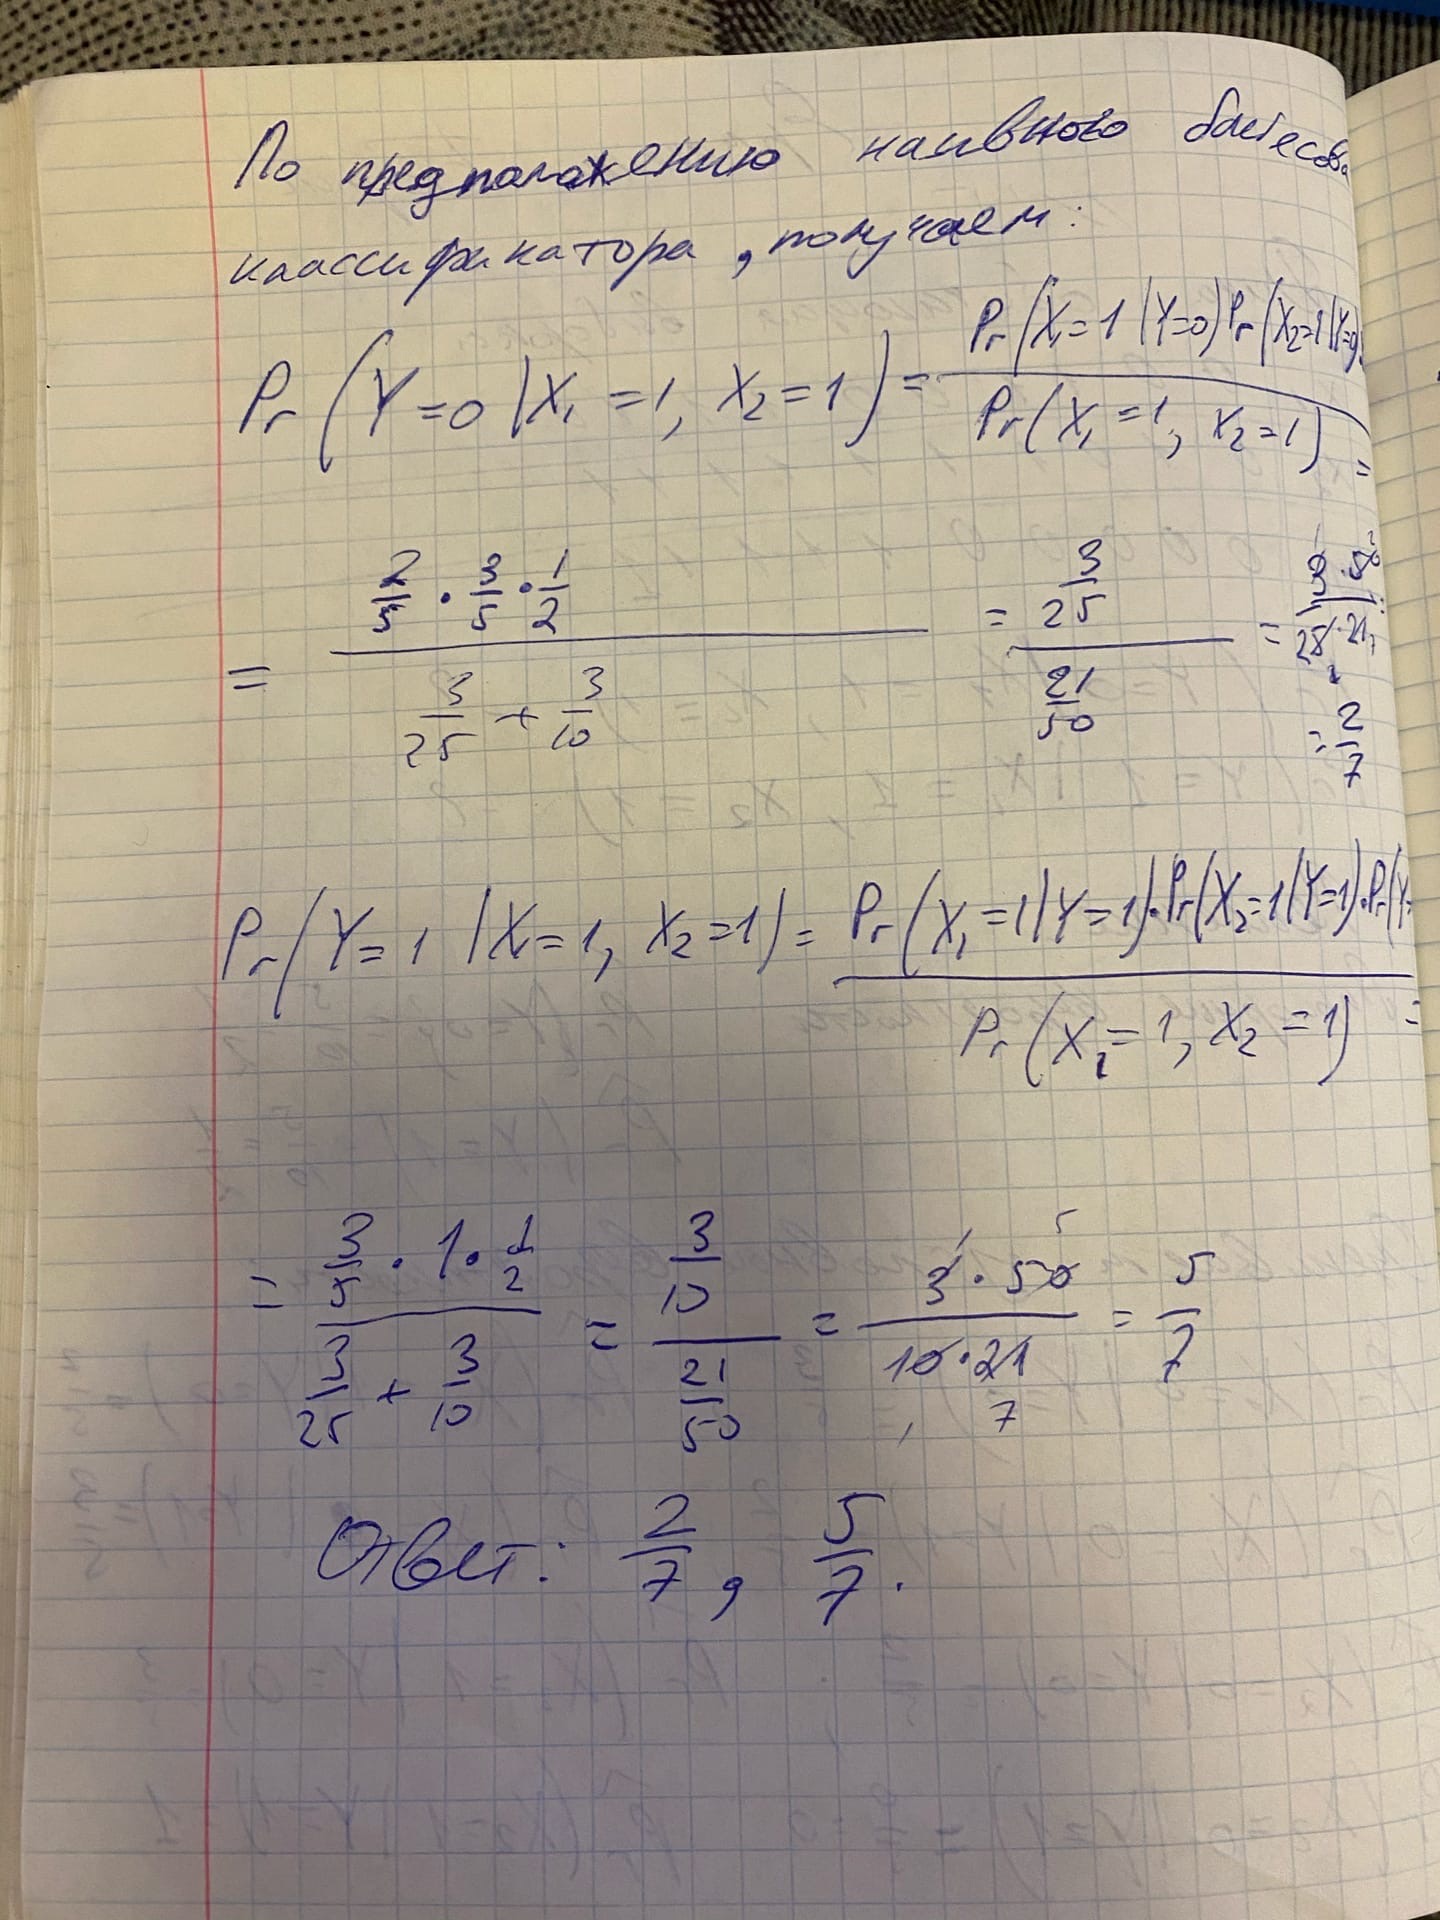 По предположению наивного байесова
классификатора, получаем:
Pr(Y=0|X₁=1, X₂=1) = Pr(X₁=1|Y=0)Pr(X₂=1|Y=0) / Pr(X₁=1, X₂=1) =
= (2/5 · 3/5 · 1/2) / (3/25 + 3/10) = (3/25) / (21/50) = (3·50) / (25·21) = 2/7
Pr(Y=1|X₁=1, X₂=1) = Pr(X₁=1|Y=1)·Pr(X₂=1|Y=1)·Pr(Y= / Pr(X₁=1, X₂=1) =
= (3/5 · 1 · 1/2) / (3/25 + 3/10) = (3/10) / (21/50) = (3·50) / (10·21) = 5/7
Ответ: 2/7, 5/7.